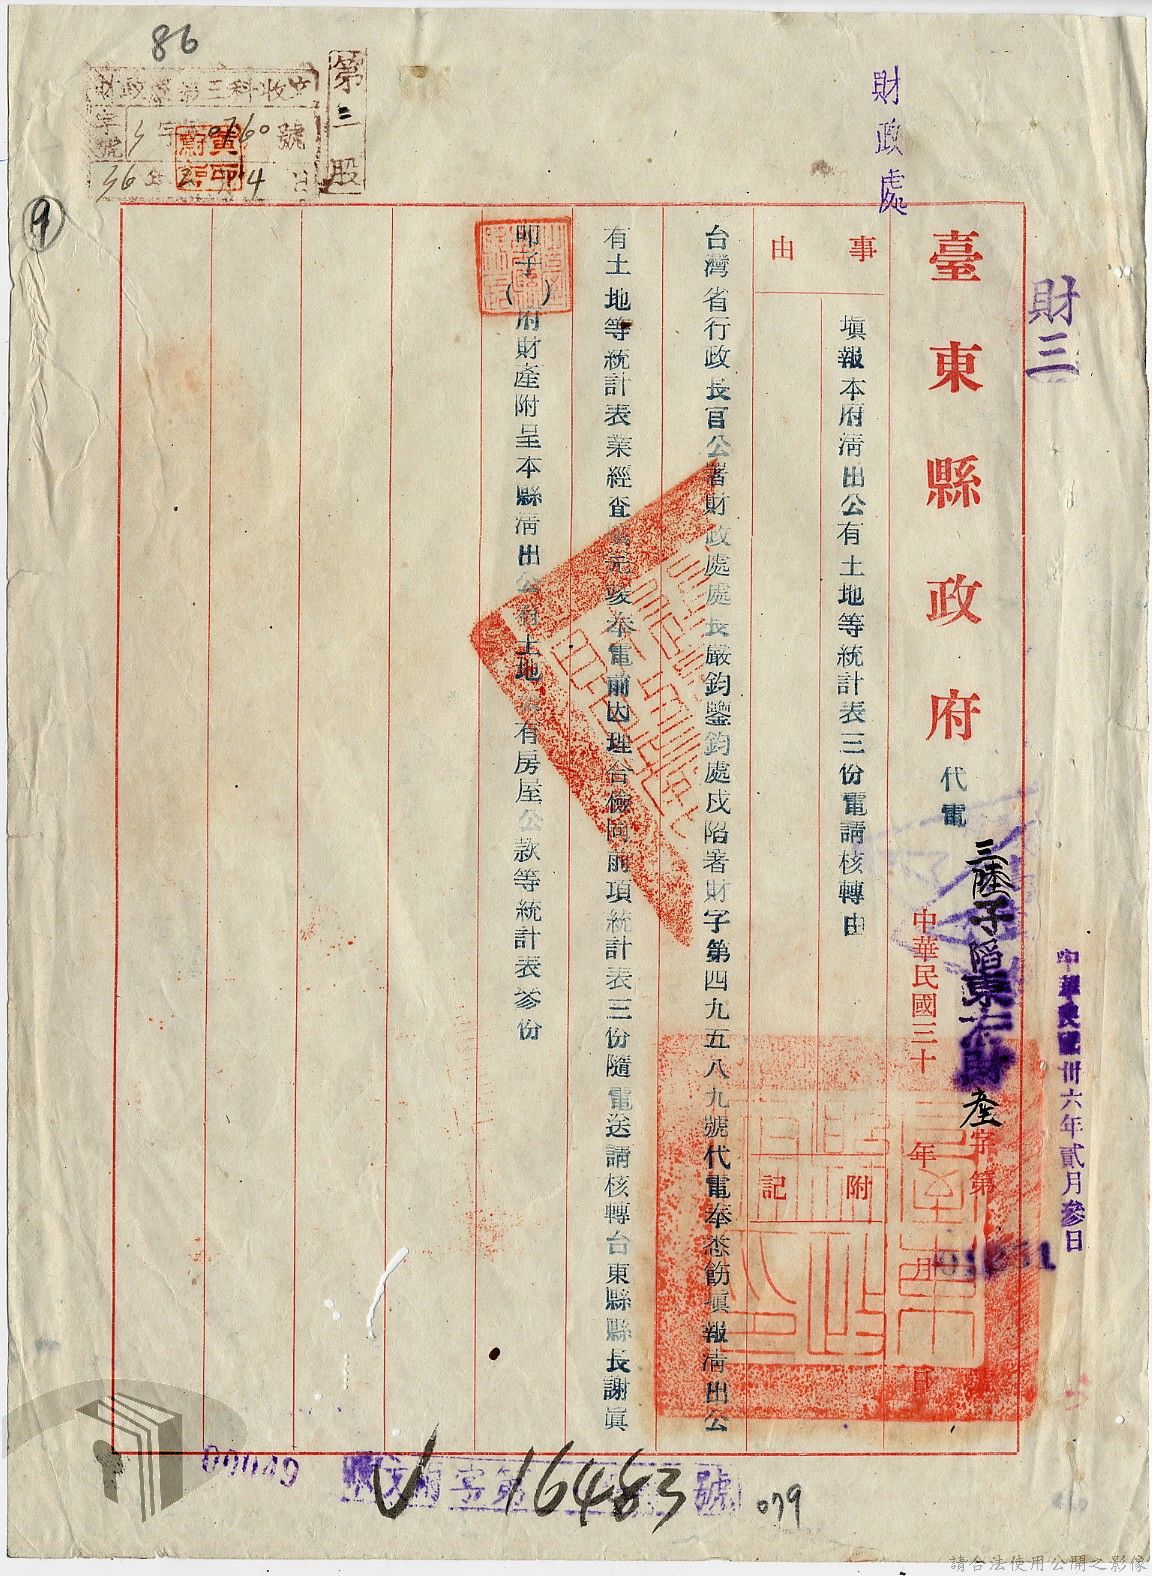 86
第三股
財政處第三科收文
字號
0760號
36年2月4日
黃
印
財政處
9
財三
臺東縣政府代電
三陸子
東右財產字第
中華民國三十 年 月 日
中華民國卅六年貳月參日
事由
填報本府清出公有土地等統計表三份電請核轉由
附記
台灣省行政長官公署財政處處長嚴鈞鑒鈞處戌陷署財字第四九五八九號代電奉悉飭填報清出公
有土地等統計表業經查填完竣奉電前因理合檢同前項統計表三份隨電送請核轉台東縣縣長謝真
叩子( )府財產附呈本縣清出公有土地公有房屋公款等統計表參份
字第16483號
079
請合法使用公開之影像